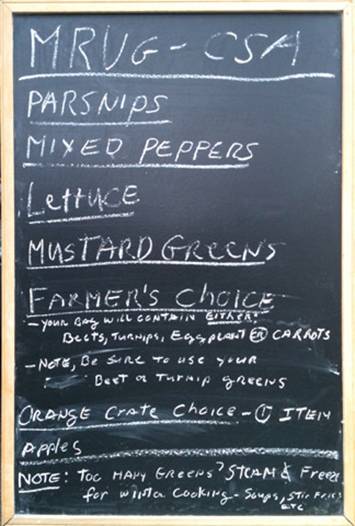 MRUG - CSA
PARSNIPS
MIXED PEPPERS
Lettuce
MUSTARD GREENS
FARMER'S CHOICE
- YOUR BAG WILL CONTAIN EITHER:
BEETS, TURNIPS, EGGPLANT OR CARROTS
- NOTE, BE SURE TO USE YOUR
BEET OR TURNIP GREENS
ORANGE CRATE CHOICE - 1 ITEM
Apples
NOTE: TOO MANY GREENS? STEAM & FREEZE
for WINTER COOKING - SOUPS, STIR FRIES
ETC